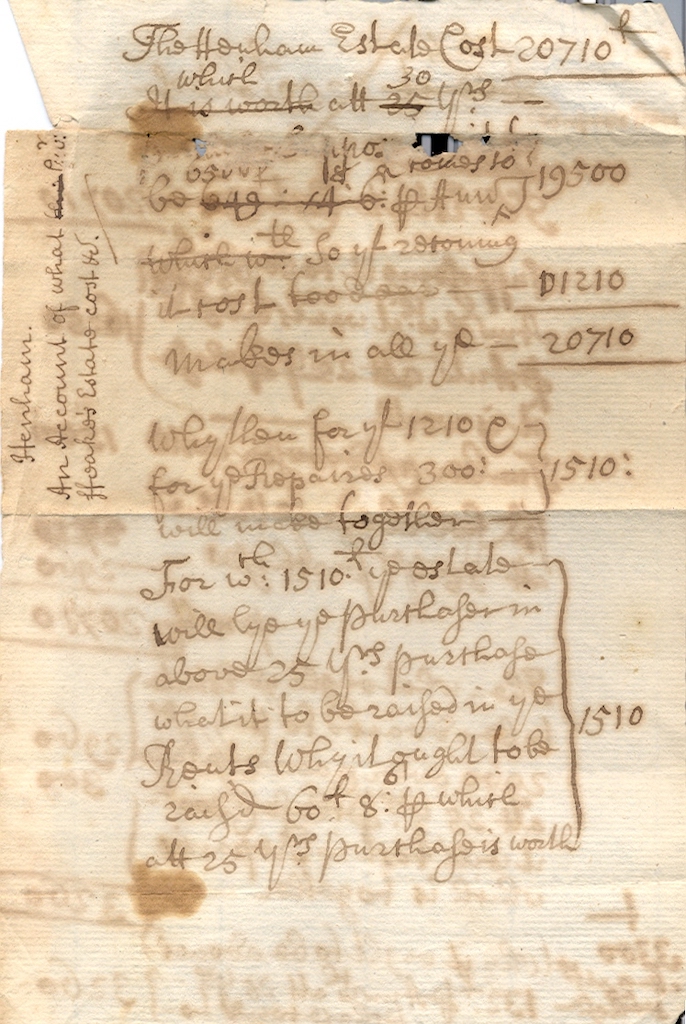 The Henham Estate Cost 20710 l
which 30
It is worth att 25 Yrs
comes to
be 649 : 14 : 6 : p Ann 19500
which wth So yt
it cost too dear 1210
Makes in all ye 20710
Why then for yt 1210 &
for ye Repaires 300: 1510:
will make together
For wth: 1510 l ye estate
will lye ye purchaser in
above 25 Yrs purchase
what it to be raised in ye
Rents Why it ought to be 1510
raisd 60 l 8: p which
att 25 Yrs purchase is worth
Henham.
An Account of what
Heake's Estate cost &c.